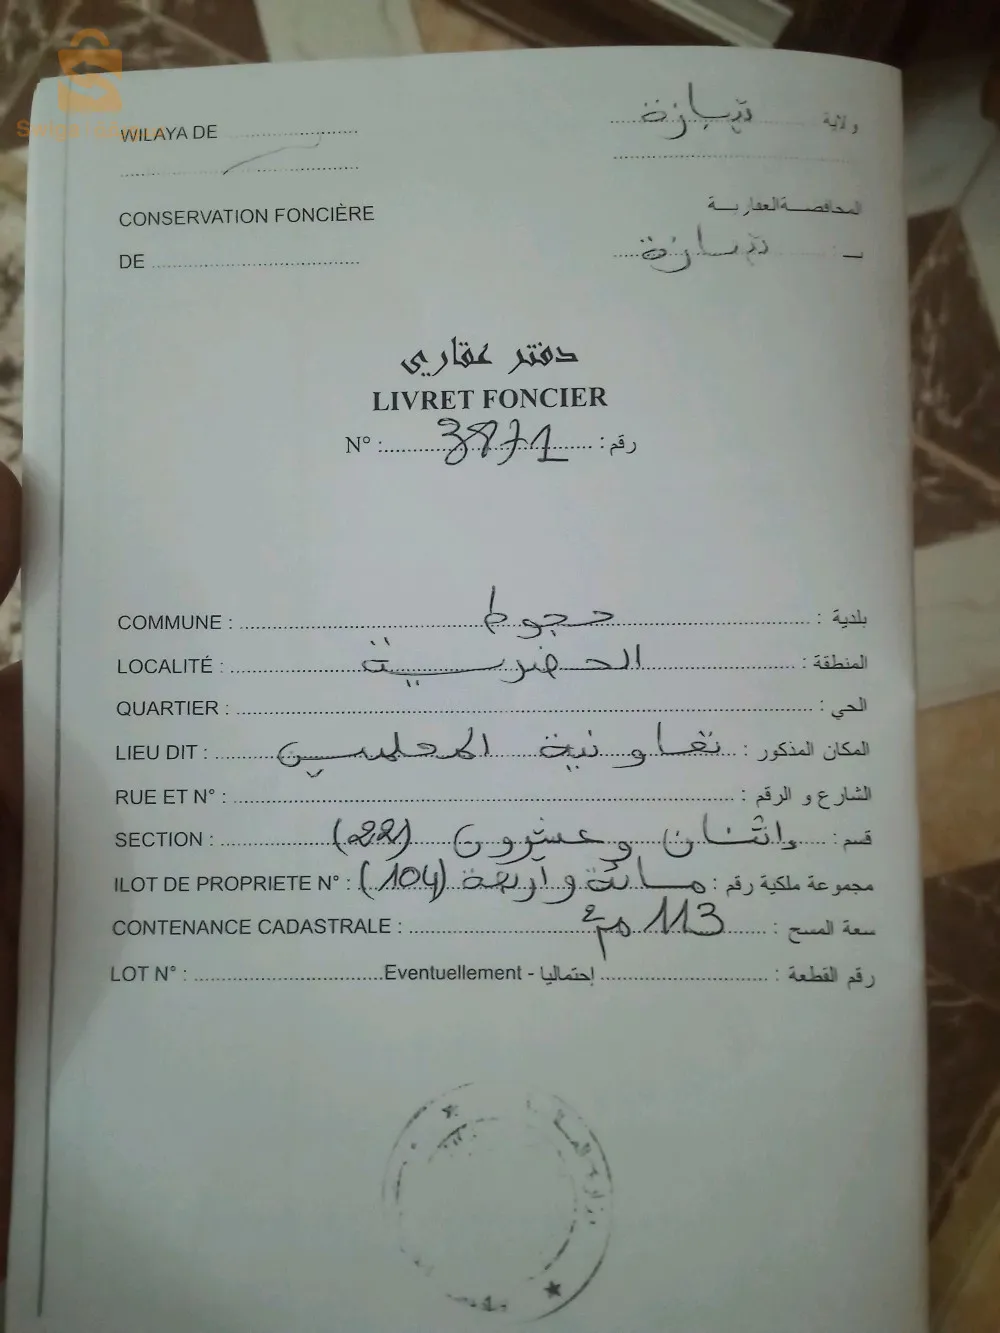 WILAYA DE ولاية تيبازة
CONSERVATION FONCIÈRE المحافظة العقارية
DE بـ : تيبازة
دفتر عقاري
LIVRET FONCIER
N° : 3871 رقم :
COMMUNE : حجوط بلدية :
LOCALITÉ : الحضرية المنطقة :
QUARTIER : الحي :
LIEU DIT : تعاونية المعلمين المكان المذكور :
RUE ET N° : الشارع و الرقم :
SECTION : إثنان وعشرون (22) قسم :
ILOT DE PROPRIETE N° : مائة وأربعة (104) مجموعة ملكية رقم :
CONTENANCE CADASTRALE : 113 م2 سعة المسح :
LOT N° : Eventuellement - إحتماليا رقم القطعة :
وزارة